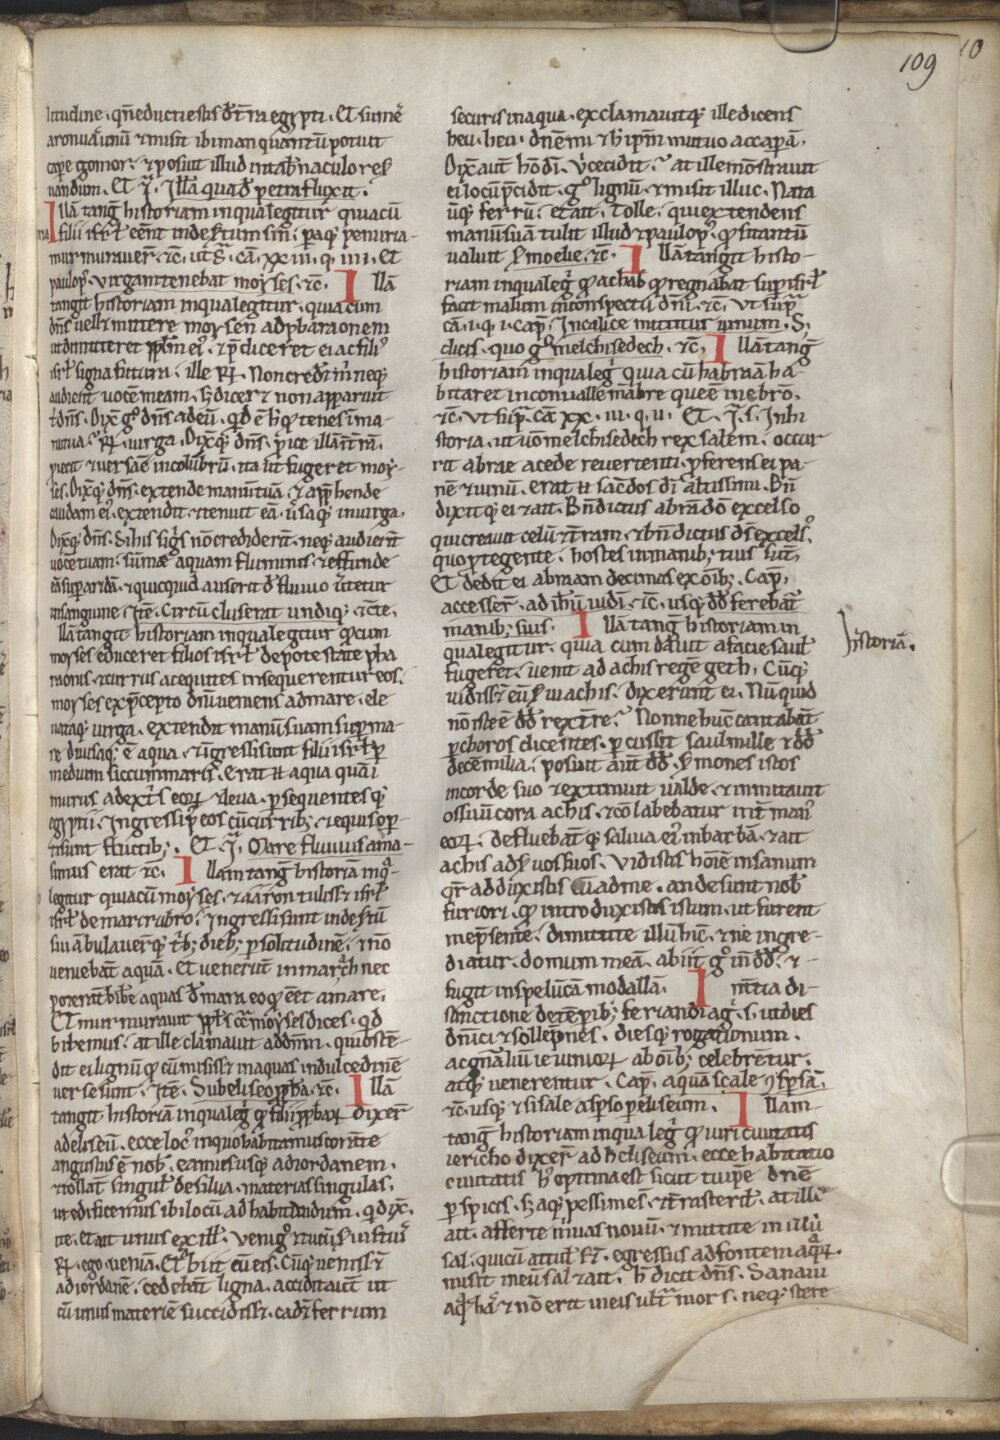 109
10
litudine . qn̄ educti estis d̄ t̄ra egypti . Et sume
aron uas unū ⁊ misit ibi man quantū potuit
cape gomor . ⁊ posuit illud in tabnaculo res
uandum . Et j̄ . Illā quad̄ petra fluxit .
Illā tang̅ historiam in qua legitur quia cū
filii isrł eēnt in desertum sin . p̄ aq̄ penuria
murmurauer̄ . ⁊c̄ . ut s̄ . cā . xx iii . q . iiii . Et
paulop⁹ . uirgam tenebat moyses . ⁊c̄ . Illā
tangit historiam in qua legitur . quia cum
dn̄s uellet mittere moysen ad pharaonem
ut dimitteret pplm ei⁹ . ⁊ p̄diceret ei ac filiis
isrł signa futura . ille R̄ . Non credēt m̄ neq;
audient uocē meam . s; dicet non apparuit
t̄ dn̄s . Dix̄ g⁰ dn̄s ad eū . qd ē h̄ qd tenes ī ma
nu tua . R̄ . uirga . Dixq; dn̄s . p̄ice illā ī t̄rā .
piecit ⁊ uersa ē in colubrū . ita ut fugeret moy
ses . Dixq; dn̄s . extende manū tuā . ⁊ app̄hende
caudam ei⁹ . extendit ⁊ tenuit eā . ūsaq; in uirgā .
Dixq; dn̄s . Si his signis nō crediderīt . neq; audierīt
uocē tuam . sume aquam fluminis . ⁊ effunde
eā sup aridā . ⁊ quicquid auserit d̄ fluuio ūtetur
in sanguine . Itē . Circū cluserat undiq; ⁊cte .
Illā tangit historiam in qua legitur qd cum
moyses educeret filios isrł de potestate pha
raonis . ⁊ currus ac equites insequerentur eos .
moyses ex p̄cepto dn̄i ueniens ad mare . ele
uataq; uirga . extendit manū suam sup ma
re diuisaq; ē aqua . ⁊ īgressi sunt filii isrł p
medium siccum maris . erat eī aqua quasi
murus a dext̄s eoꝝ ⁊ leua . p̄sequentes q;
egyptii . Ingressi p̄ eos cū currib; ⁊ equis op
ti sunt fluctib; . Et j̄ . Mare fluuius ama
rimus erat ⁊c̄ . Illam tang̅ historiā in q̄
legitur quia cū moyses . ⁊ aaron tulisset isrł
isrł de mari rubro . Ingressi sunt in desertū
sur ābulauerq; tb; dieb; p solitudinē . ⁊ nō
ueniebāt aquā . Et uenerūt in marath nec
poterāt bibe aquas d̄ mara eo q; eēt amare .
Et murmurauit ppłs cōt moysē dicēs . qd
bibemus . at ille clamauit ad dn̄m . qui ostē
dit ei lignū q cū misisset in aquas in dulcedinē
uerse sunt . Itē . Sub eliseo ppħa . ⁊c̄ . Illā
tangit historiā in qua legit qd filii ppħaꝝ dixert̄
ad eliseū . ecce loc⁹ in quo habitamus coram te
angustus ē nob . eamus usq; ad iordanem .
⁊ tollat singul de silua . materias singulas .
ut edificemus ibi locū ad habitandum . q̄ dix̄ .
ite . et ait unus ex ill . ueni g⁰ ⁊ tu cū s̄uis tuis
R̄ . ego ueniā . Et abiit cū eis . Cūq; uenisset
ad iordanē . cedebāt ligna . accidit aut ut
cū unus materiē succidisset . cad̄et ferrum
securis in aqua . exclamauitq; ille dicens
heu . heu . dn̄e mi ⁊ h̄ ipm̄ mutuo accepā .
Dix̄ aut̄ hō di . U̇ cecidit . at ille mōstrauit
ei locū p̄cidit . g⁰ lignū . ⁊ misit illuc . Nata
uitq; ferrū . et ait . Tolle . qui extendens
manū suā tulit illud ⁊ paulop⁹ . qd sitantū
ualuit s; moelie . ⁊c̄ . Illā tangit histo
riam in qua legit̄ qd achab qd regnabat sup isrł
fecit malum in cōspectu dn̄i . ⁊c̄ . ut supra
cā . i . q . i . cap . In calice mittitur uinum . S .
dicis . quo g⁰ melchisedech . ⁊c̄ . Illā tang̅
historiam in qua leg̅ quia cū habraā ha
bitaret in conualle mābre que ē in ebrō .
⁊c̄ . ut supra . cā xx . iii . q . ii . Et j̄ . s . In hi
storia . ut uō melchisedech rex salem . occur
rit abrae a cede reuertenti . p̄ferens ei pa
nē ⁊ uinū . erat eī sac̄dos di altissimi . Bn̄
dixitq; ei ⁊ ait . Bn̄dictus abrā dō excelso
qui creauit celū ⁊ t̄ram ⁊ bn̄dictus ds̄ excels⁹ .
quo p̄tegente . hostes in manib; tuis sunt .
Et dedit ei abraam decimas ex oīb; . Cap .
accesser̄ . ad ihm̄ iudi . ⁊c̄ . usq; dd̄ ferebat̄
manib; suis . Illā tang̅ historiam in
qua legitur . quia cum dauit a facie saul
fugeret . uenit ad achis regē geth . Cūq;
uidisset eū s̄ui achis . dixerunt ei . Nū quid
nō iste ē dd̄ rex t̄re . Nonne huic cantabāt
p choros dicentes . p cussit saul mille ⁊ dd̄
decē milia . posuit aut̄ dd̄ . sermones istos
in corde suo ⁊ extimuit ualde . ⁊ immutauit
os suū corā achis . ⁊ colabebatur int̄ man⁹
eoꝝ . defluebātq; saliua ei⁹ in barbā . ⁊ ait
achis ad s̄uos suos . Vidistis hoīē insanum
qr̄ adduxistis eū ad me . an desunt nob
furiosi . qd introduxistis istum . ut fureret
me p̄sente . dimittite illū hinc . ⁊ ne ingre
diatur . domum meā . abiit g⁰ in dd̄ . ⁊
fugit in speluncā modallā . In tia di
stinctione de tēpib; feriandi agit̄ . s . ut dies
dn̄ici ⁊ sollepnes . diesq; rogationum .
ac gn̄aliū ieiunioꝝ ab oīb; celebrētur .
atq; uenerentur . Cap . aquā scale ɔspsā .
⁊c̄ . usq; ⁊ si sale aspso p eliseum . Illam
tang̅ historiam in qua leg̅ qd uiri ciuitatis
iericho dixer̄ ad heliseum . ecce habitatio
ciuitatis h̄ optima est sicut tu ip̄e dn̄e
pspicis . s; aq̄ pessime s . ⁊ t̄ra sterił . at ill⁹
ait . afferte m̄ uas nouū . ⁊ mittite in illū
sal . qui cū attulisset . egressus ad fontem aq̄ꝝ .
misit in eū sal ⁊ ait . h̄ dicit dn̄s . Sanaui
aq̄s has ⁊ nō erit in eis ult̄ mors . neq; stere
historiā .